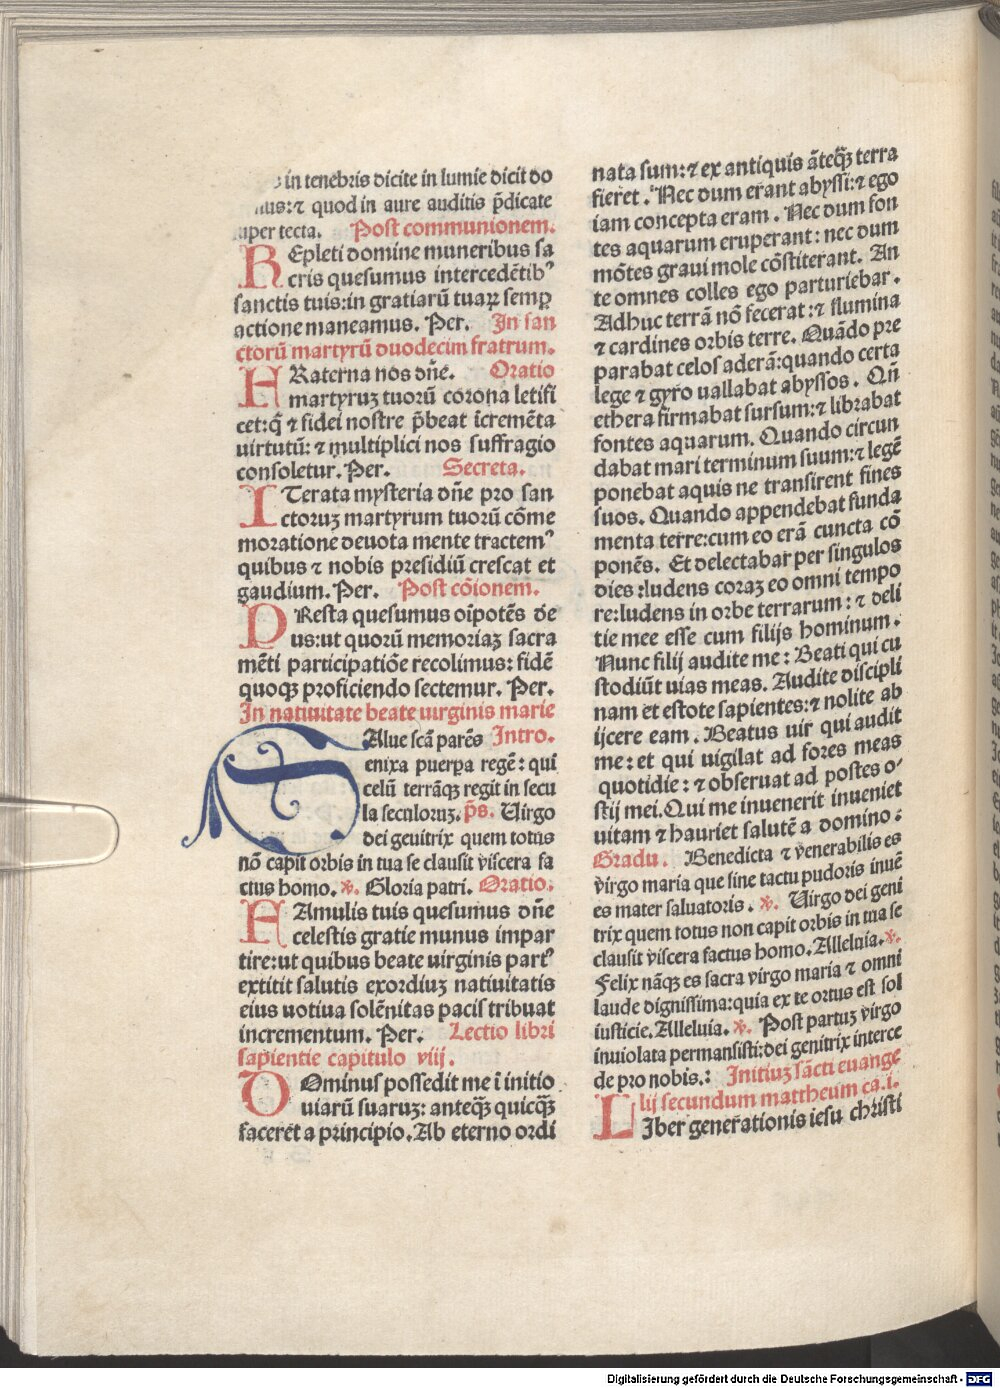 in tenebris dicite in lumīe dicit do
nus:⁊ quod in aure auditis p̄dicate
uper tecta. Post communionem.
REpleti domine muneribus sa
cris quesumus intercedētibꝰ
sanctis tuis:in gratiarū tuaꝝ semꝑ
actione maneamus. Per. In san
ctorū martyrū duodecim fratrum.
FRaterna nos dn̄e. Oratio
martyruꝫ tuorū corona letifi
cet:q̄ ⁊ fidei nostre p̄beat īcremēta
uirtutū: ⁊ multiplici nos suffragio
consoletur. Per. Secreta.
ITerata mysteria dn̄e pro san
ctoruꝫ martyrum tuorū cōme
moratione deuota mente tractemꝰ
quibus ⁊ nobis presidiū crescat et
gaudium. Per. Post cōionem.
PResta quesumus oīpotēs de
us:ut quorū memoriaꝫ sacra
mēti participatiōe recolimus: fidē
quoqꝫ proficiendo sectemur. Per.
In natiuitate beate uirginis marie
SAlue scā parēs Intro.
enixa puerpa regē: qui
celū terrāqꝫ regit in secu
la seculoruꝫ. p̄s. Uirgo
dei genitrix quem totus
nō capit orbis in tua se clausit viscera fa
ctus homo. ℣. Gloria patri. Oratio.
FAmulis tuis quesumus dn̄e
celestis gratie munus impar
tire:ut quibus beate uirginis partꝰ
extitit salutis exordiuꝫ natiuitatis
eius uotiua solēnitas pacis tribuat
incrementum. Per. Lectio libri
sapientie capitulo viij.
DOminus possedit me ī initio
uiarū suaruꝫ: anteqꝫ̄ quicqꝫ̄
faceret a principio. Ab eterno ordi
nata sum:⁊ ex antiquis āteqꝫ̄ terra
fieret. Nec dum erant abyssi:⁊ ego
iam concepta eram. Nec dum fon
tes aquarum eruperant: nec dum
mōtes graui mole cōstiterant. An
te omnes colles ego parturiebar.
Adhuc terrā nō fecerat:⁊ flumina
⁊ cardines orbis terre. Quādo pre
parabat celos aderā:quando certa
lege ⁊ gyro uallabat abyssos. Qn̄
ethera firmabat sursum:⁊ librabat
fontes aquarum. Quando circun
dabat mari terminum suum:⁊ legē
ponebat aquis ne transirent fines
suos. Quando appendebat funda
menta terre:cum eo erā cuncta cō
ponēs. Et delectabar per singulos
dies:ludens coraꝫ eo omni tempo
re:ludens in orbe terrarum: ⁊ deli
tie mee esse cum filijs hominum.
Nunc filij audite me: Beati qui cu
stodiūt uias meas. Audite discipli
nam et estote sapientes:⁊ nolite ab
ijcere eam. Beatus uir qui audit
me: et qui uigilat ad fores meas
quotidie: ⁊ obseruat ad postes o
stij mei. Qui me inuenerit inueniet
uitam ⁊ hauriet salutē a domino:
Gradu. Benedicta ⁊ venerabilis es
virgo maria que sine tactu pudoris inuē
es mater saluatoris. ℣. Uirgo dei geni
trix quem totus non capit orbis in tua se
clausit viscera factus homo. Alleluia. ℣.
Felix nāqꝫ es sacra virgo maria ⁊ omni
laude dignissima:quia ex te ortus est sol
iusticie. Alleluia. ℣. Post partuꝫ virgo
inuiolata permansisti:dei genitrix interce
de pro nobis.: Initiuꝫ sācti euange
lij secundum mattheum ca.i.
LIber generationis iesu christi
Digitalisierung gefördert durch die Deutsche Forschungsgemeinschaft - DFG